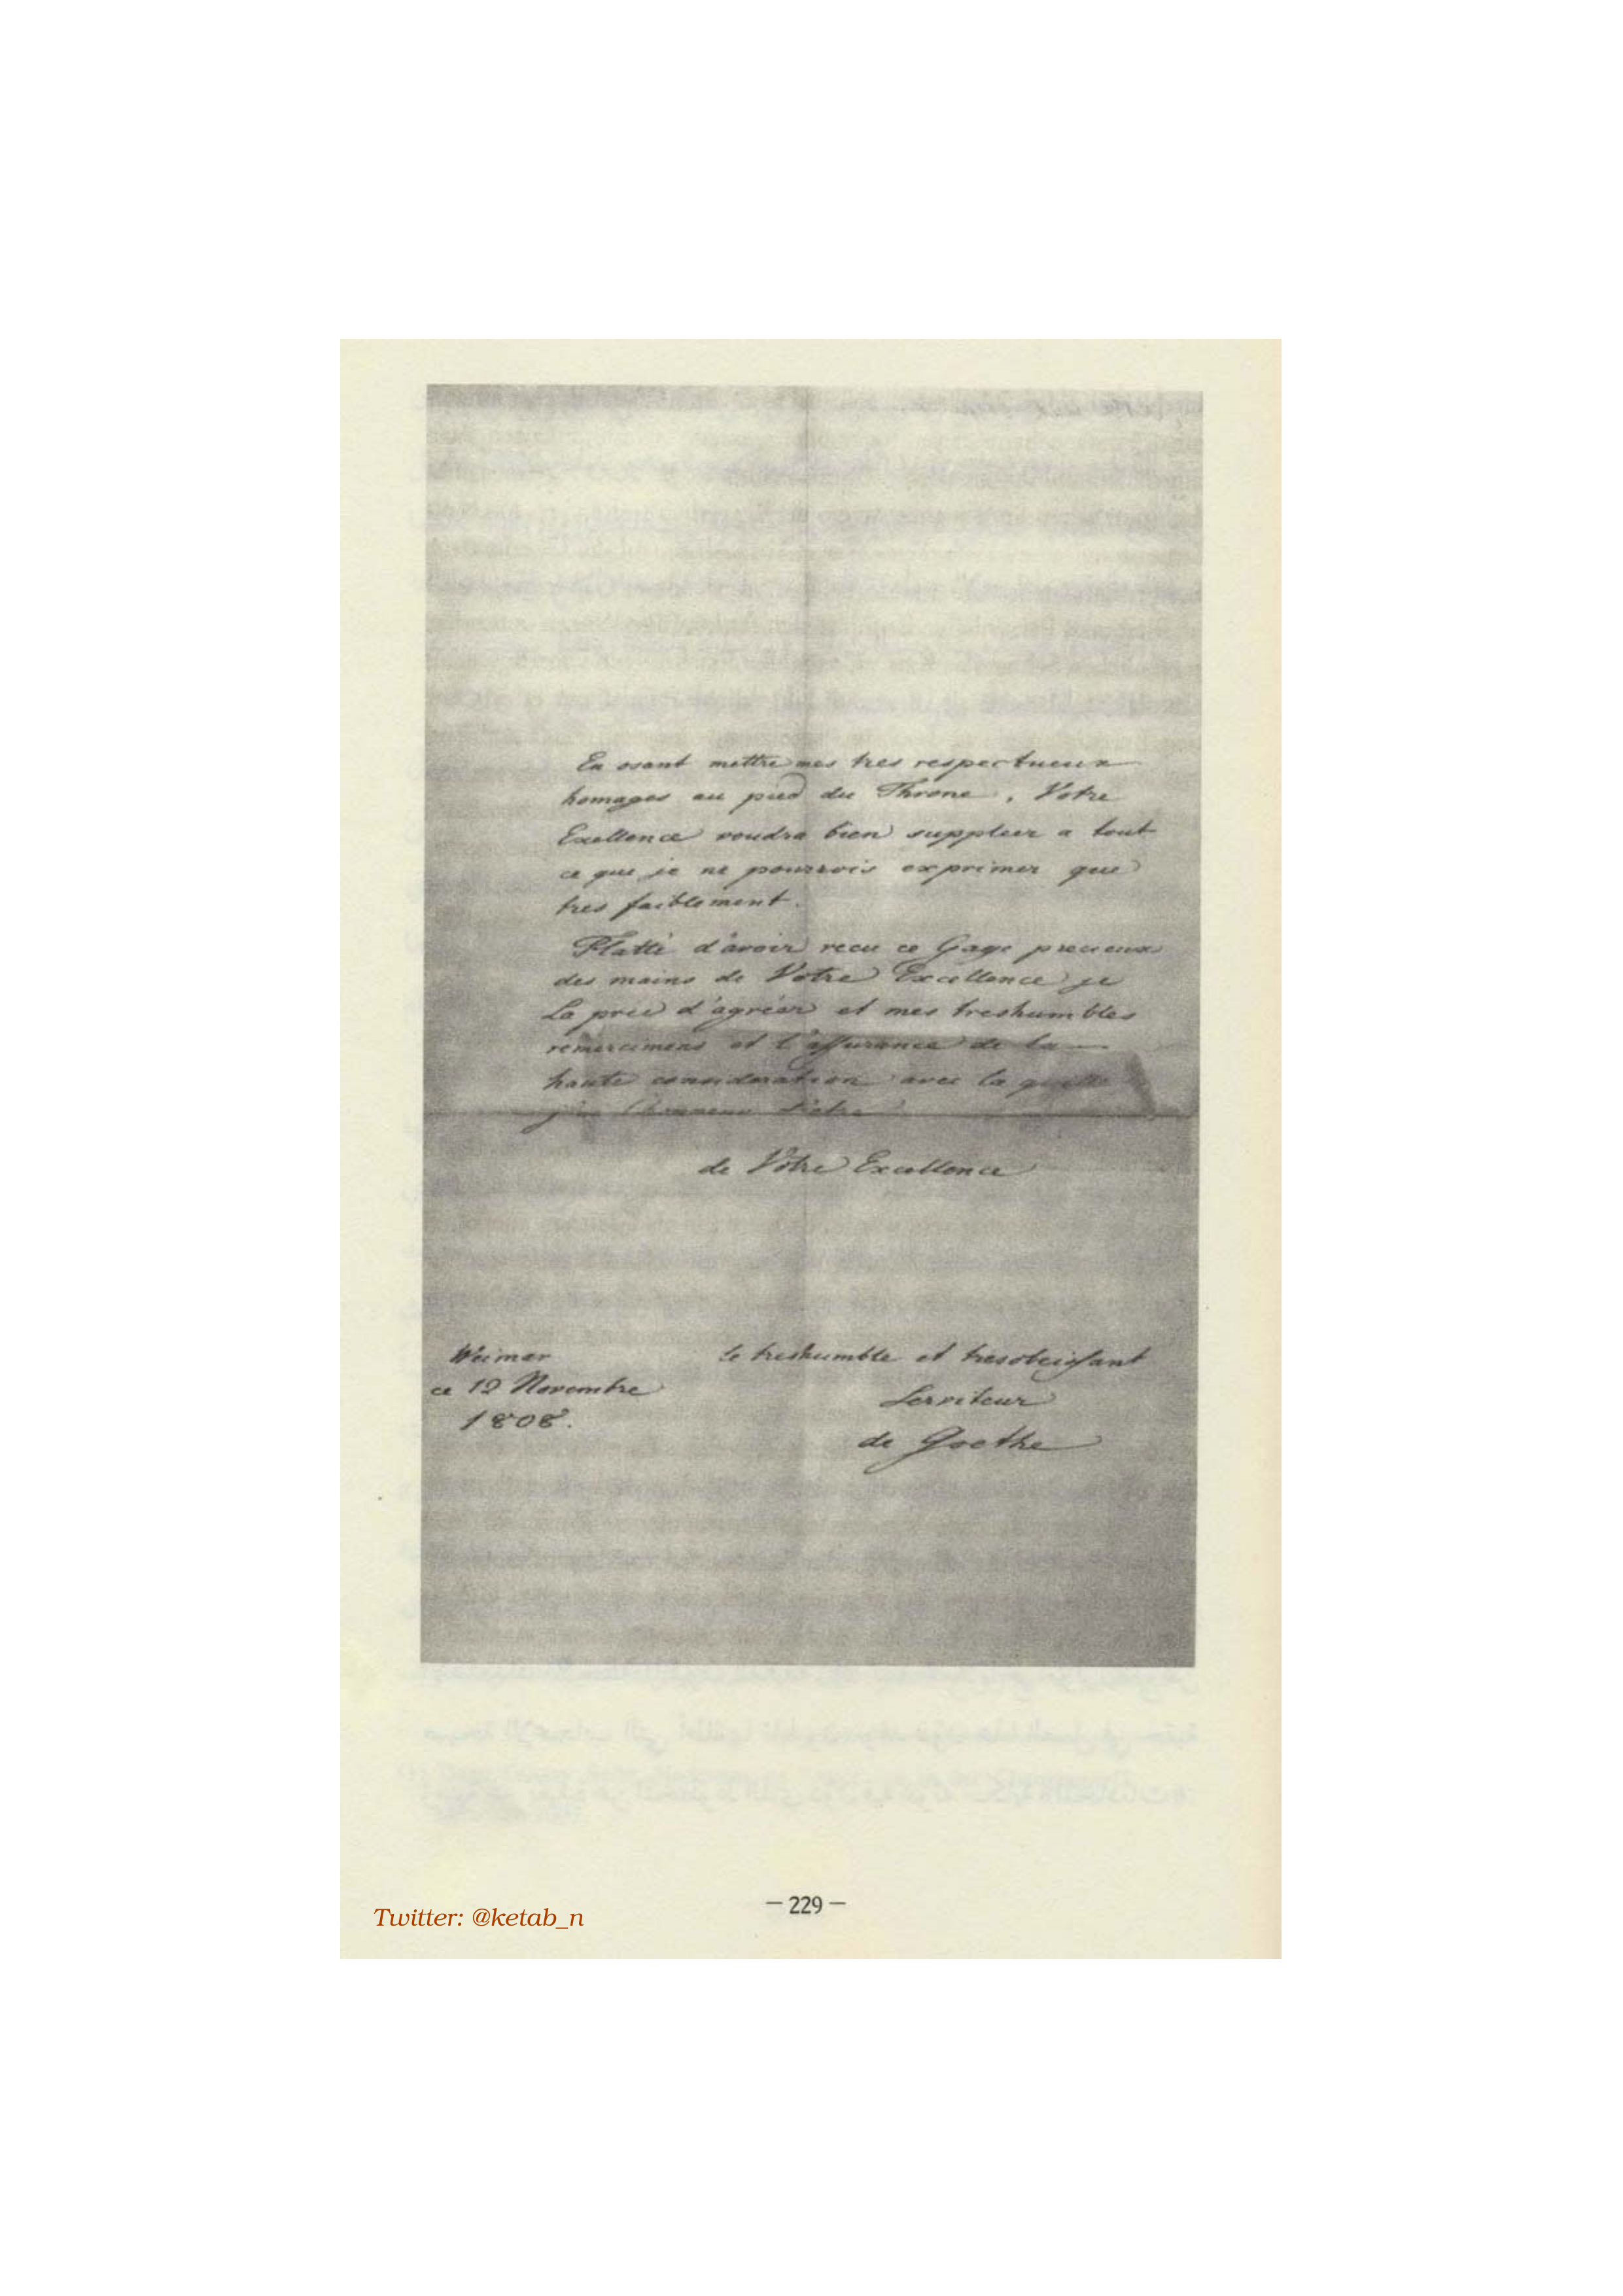 En osant mettre mes tres respectueux
homages au pied du Throne, Votre
Exellence voudra bien suppleer a tout
ce que je ne pourrois exprimer que
tres faiblement.
Flatté d'avoir recu ce Gage precieux
des mains de Votre Excellence je
La prie d'agréer et mes treshumbles
remercimens et l'assurance de la
haute consideration avec la quelle
j'ai l'honneur d'etre
de Votre Excellence
le treshumble et tresobeissant
Serviteur
de Goethe
Weimar
ce 12 Novembre
1808.
– 229 –
Twitter: @ketab_n